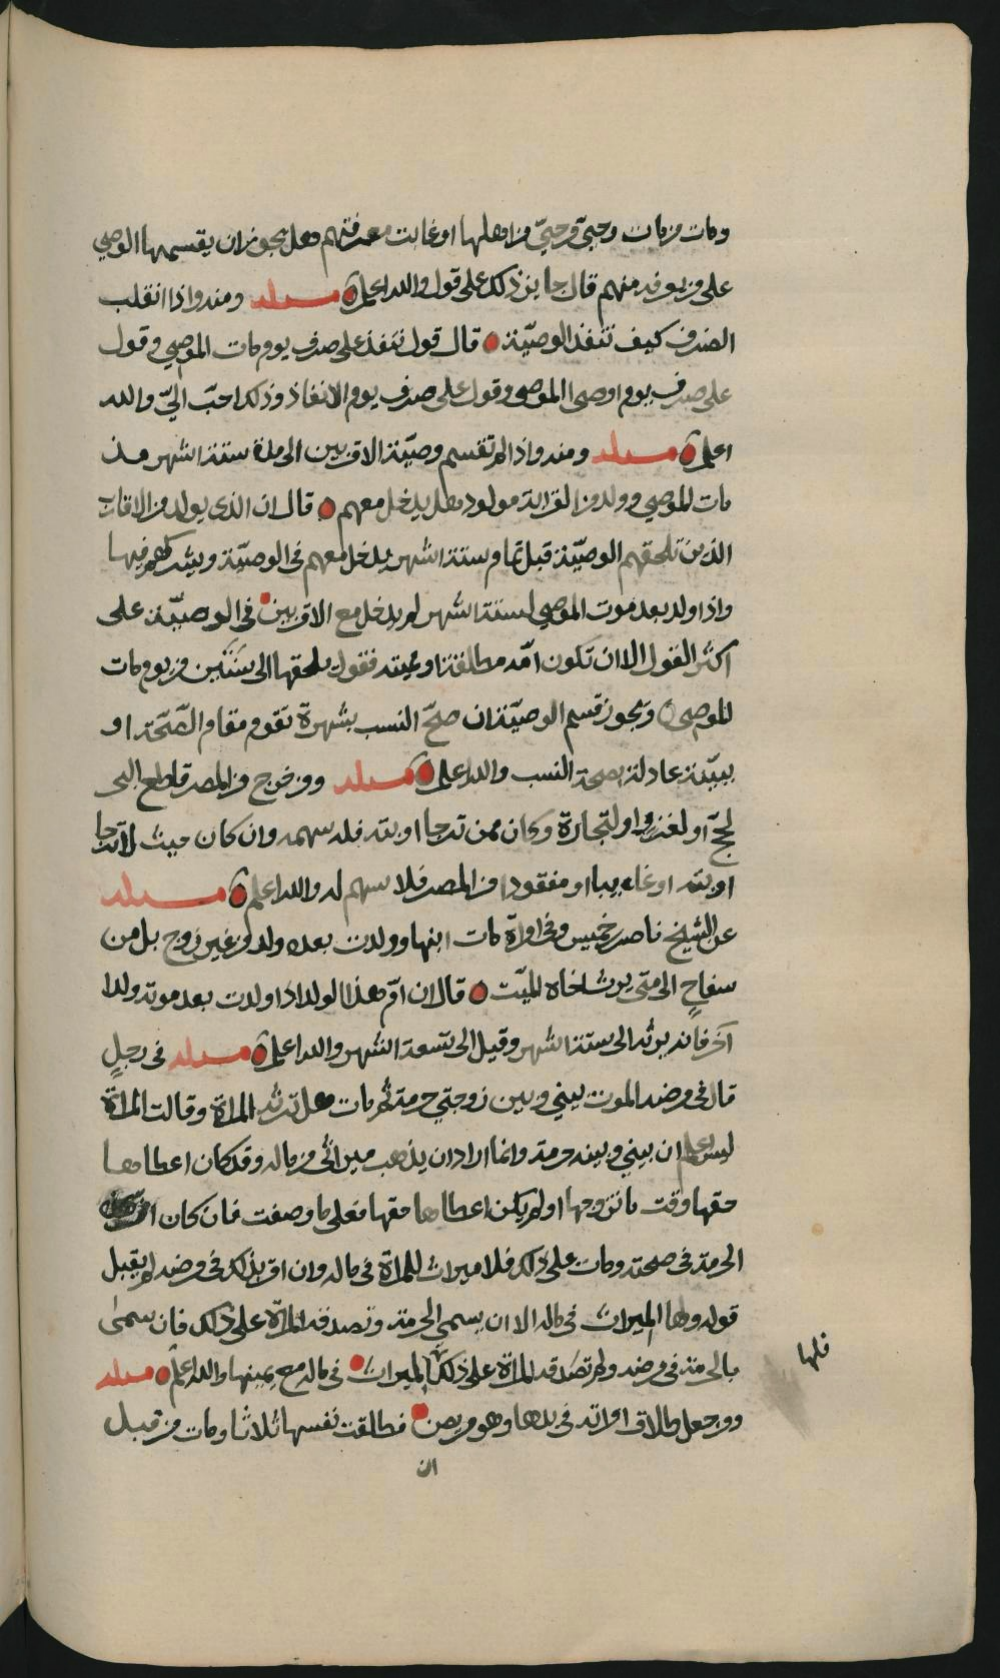 ومات من مات وحيي من حيي من اهلها او غابت معرفتهم هل يجوز ان يقسمها الوصي
على من يعرفه منهم قال جايز ذلك على قول والله اعلم مسئلة ومنه واذا انقلب
الصرف كيف تنفذ الوصيّة قال قول تنفذ على صرف يوم مات الموصي وقول
على صرف يوم اوصى الموصي وقول على صرف يوم الانفاذ وذلك احبّ اليّ والله
اعلم مسئلة ومنه واذا لم تقسم وصيّة الاقربين الى مدة ستة اشهر منذ
مات الموصي وولد من القرابة مولود هل يدخل معهم قال ان الذي يولد من الاقارب
الذين تلحقهم الوصيّة قبل تمام ستة اشهر يدخل معهم في الوصيّة ويشركهم فيها
واذا ولد بعد موت الموصي لستة اشهر لم يدخل مع الاقربين في الوصيّة على
اكثر القول الا ان تكون امّه مطلقة او مميتة فقول يلحقها الى سنتين من يوم مات
الموصي ويجوز قسم الوصيّة ان صحّ النسب بشهرة تقوم مقام الصّحّة او
ببيّنة عادلة بصحة النسب والله اعلم مسئلة ومن خرج من المصر قاطع البحر
لحجّ او لغزو او لتجارة وكان ممن ترجا اوبته فله سهمه وان كان حيث لا ترجا
اوبته او غاب غايبا او مفقودا من المصر فلا سهم له والله اعلم مسئلة
عن الشيخ ناصر بن خميس وفي امراة مات ابنها وولدت بعده ولد من غير زوج بل من
سفاح الى متى يرث اخاه الميّت قال ان امّ هذا الولد اذا ولدت بعد موته ولدا
آخر فانه يرثه الى ستة اشهر وقيل الى تسعة اشهر والله اعلم مسئلة في رجلٍ
قال في مرضه الموت بيني وبين زوجتي حرمة ثم مات هل ترثه المراة وقالت المراة
ليس اعلم ان بيني وبينه حرمة وانما اراد ان يذهب ميراثي من ماله وقد كان اعطاها
حقها وقت ما تزوجها او لم يكن اعطاها حقها فعلى ما وصفت فان كان
الحرمة في صحته ومات على ذلك فلا ميراث للمراة في ماله وان اقر بذلك في مرضه لم يقبل
قوله ولها الميراث في ماله الا ان يسمي الحرمة وتصدقه المراة على ذلك فان سمى
بالحرمة في مرضه ولم تصدقه المراة على ذلك فلها الميراث في ماله مع يمينها والله اعلم مسئلة
ومن جعل طلاق امراته في يدها وهو مريض فطلقت نفسها ثلاثا ومات من قبل
ان